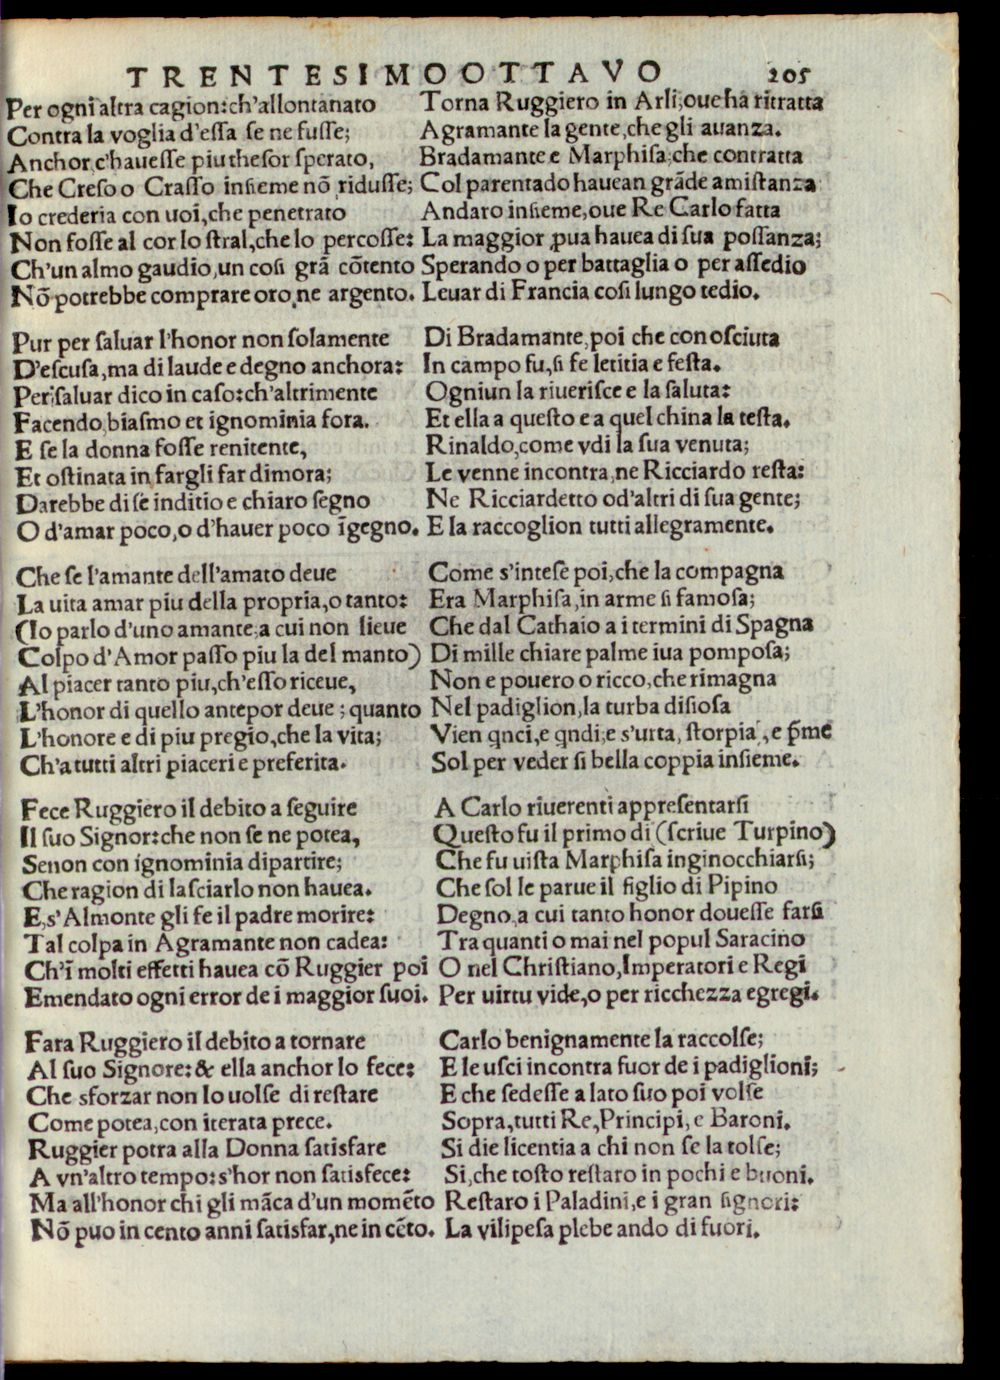 TRENTESIMOOTTAVO 205
Per ogni altra cagion: ch'allontanato
Contra la voglia d'essa se ne fusse;
Anchor, c'hauesse piu thesor sperato,
Che Creso o Crasso insieme nõ ridusse;
Io crederia con uoi, che penetrato
Non fosse al cor lo stral, che lo percosse:
Ch'un almo gaudio, un cosi grã cõtento
Nõ potrebbe comprare oro, ne argento.
Pur per saluar l'honor non solamente
D'escusa, ma di laude e degno anchora:
Per saluar dico in caso: ch'altrimente
Facendo, biasmo et ignominia fora.
E se la donna fosse renitente,
Et ostinata in fargli far dimora;
Darebbe di se inditio e chiaro segno
O d'amar poco, o d'hauer poco ĩgegno.
Che se l'amante dell'amato deue
La uita amar piu della propria, o tanto:
(Io parlo d'uno amante, a cui non lieue
Colpo d'Amor passo piu la del manto)
Al piacer tanto piu, ch'esso riceue,
L'honor di quello antepor deue; quanto
L'honore e di piu pregio, che la vita;
Ch'a tutti altri piaceri e preferita.
Fece Ruggiero il debito a seguire
Il suo Signor: che non se ne potea,
Senon con ignominia dipartire;
Che ragion di lasciarlo non hauea.
E, s'Almonte gli fe il padre morire:
Tal colpa in Agramante non cadea:
Ch'i molti effetti hauea cõ Ruggier poi
Emendato ogni error de i maggior suoi.
Fara Ruggiero il debito a tornare
Al suo Signore: & ella anchor lo fece:
Che sforzar non lo uolse di restare
Come potea, con iterata prece.
Ruggier potra alla Donna satisfare
A vn'altro tempo: s'hor non satisfece:
Ma all'honor chi gli mãca d'un momẽto
Nõ puo in cento anni satisfar, ne in cẽto.
Torna Ruggiero in Arli, oue ha ritratta
Agramante la gente, che gli auanza.
Bradamante e Marphisa, che contratta
Col parentado hauean grãde amistanza
Andaro insieme, oue Re Carlo fatta
La maggior ꝓua hauea di sua possanza;
Sperando o per battaglia o per assedio
Leuar di Francia cosi lungo tedio.
Di Bradamante, poi che conosciuta
In campo fu, si fe letitia e festa.
Ogniun la riuerisce e la saluta:
Et ella a questo e a quel china la testa.
Rinaldo, come vdi la sua venuta;
Le venne incontra, ne Ricciardo resta:
Ne Ricciardetto od'altri di sua gente;
E la raccoglion tutti allegramente.
Come s'intese poi, che la compagna
Era Marphisa, in arme si famosa;
Che dal Cathaio a i termini di Spagna
Di mille chiare palme iua pomposa;
Non e pouero o ricco, che rimagna
Nel padiglion, la turba disiosa
Vien qnci, e qndi, e s'urta, storpia, e p̃me
Sol per veder si bella coppia insieme.
A Carlo riuerenti appresentarsi
Questo fu il primo di (scriue Turpino)
Che fu uista Marphisa inginocchiarsi;
Che sol le parue il figlio di Pipino
Degno, a cui tanto honor douesse farsi
Tra quanti o mai nel popul Saracino
O nel Christiano, Imperatori e Regi
Per uirtu vide, o per ricchezza egregi.
Carlo benignamente la raccolse;
E le usci incontra fuor de i padiglioni;
E che sedesse a lato suo poi volse
Sopra, tutti Re, Principi, e Baroni.
Si die licentia a chi non se la tolse;
Si, che tosto restaro in pochi e buoni.
Restaro i Paladini, e i gran signori:
La vilipesa plebe ando di fuori.